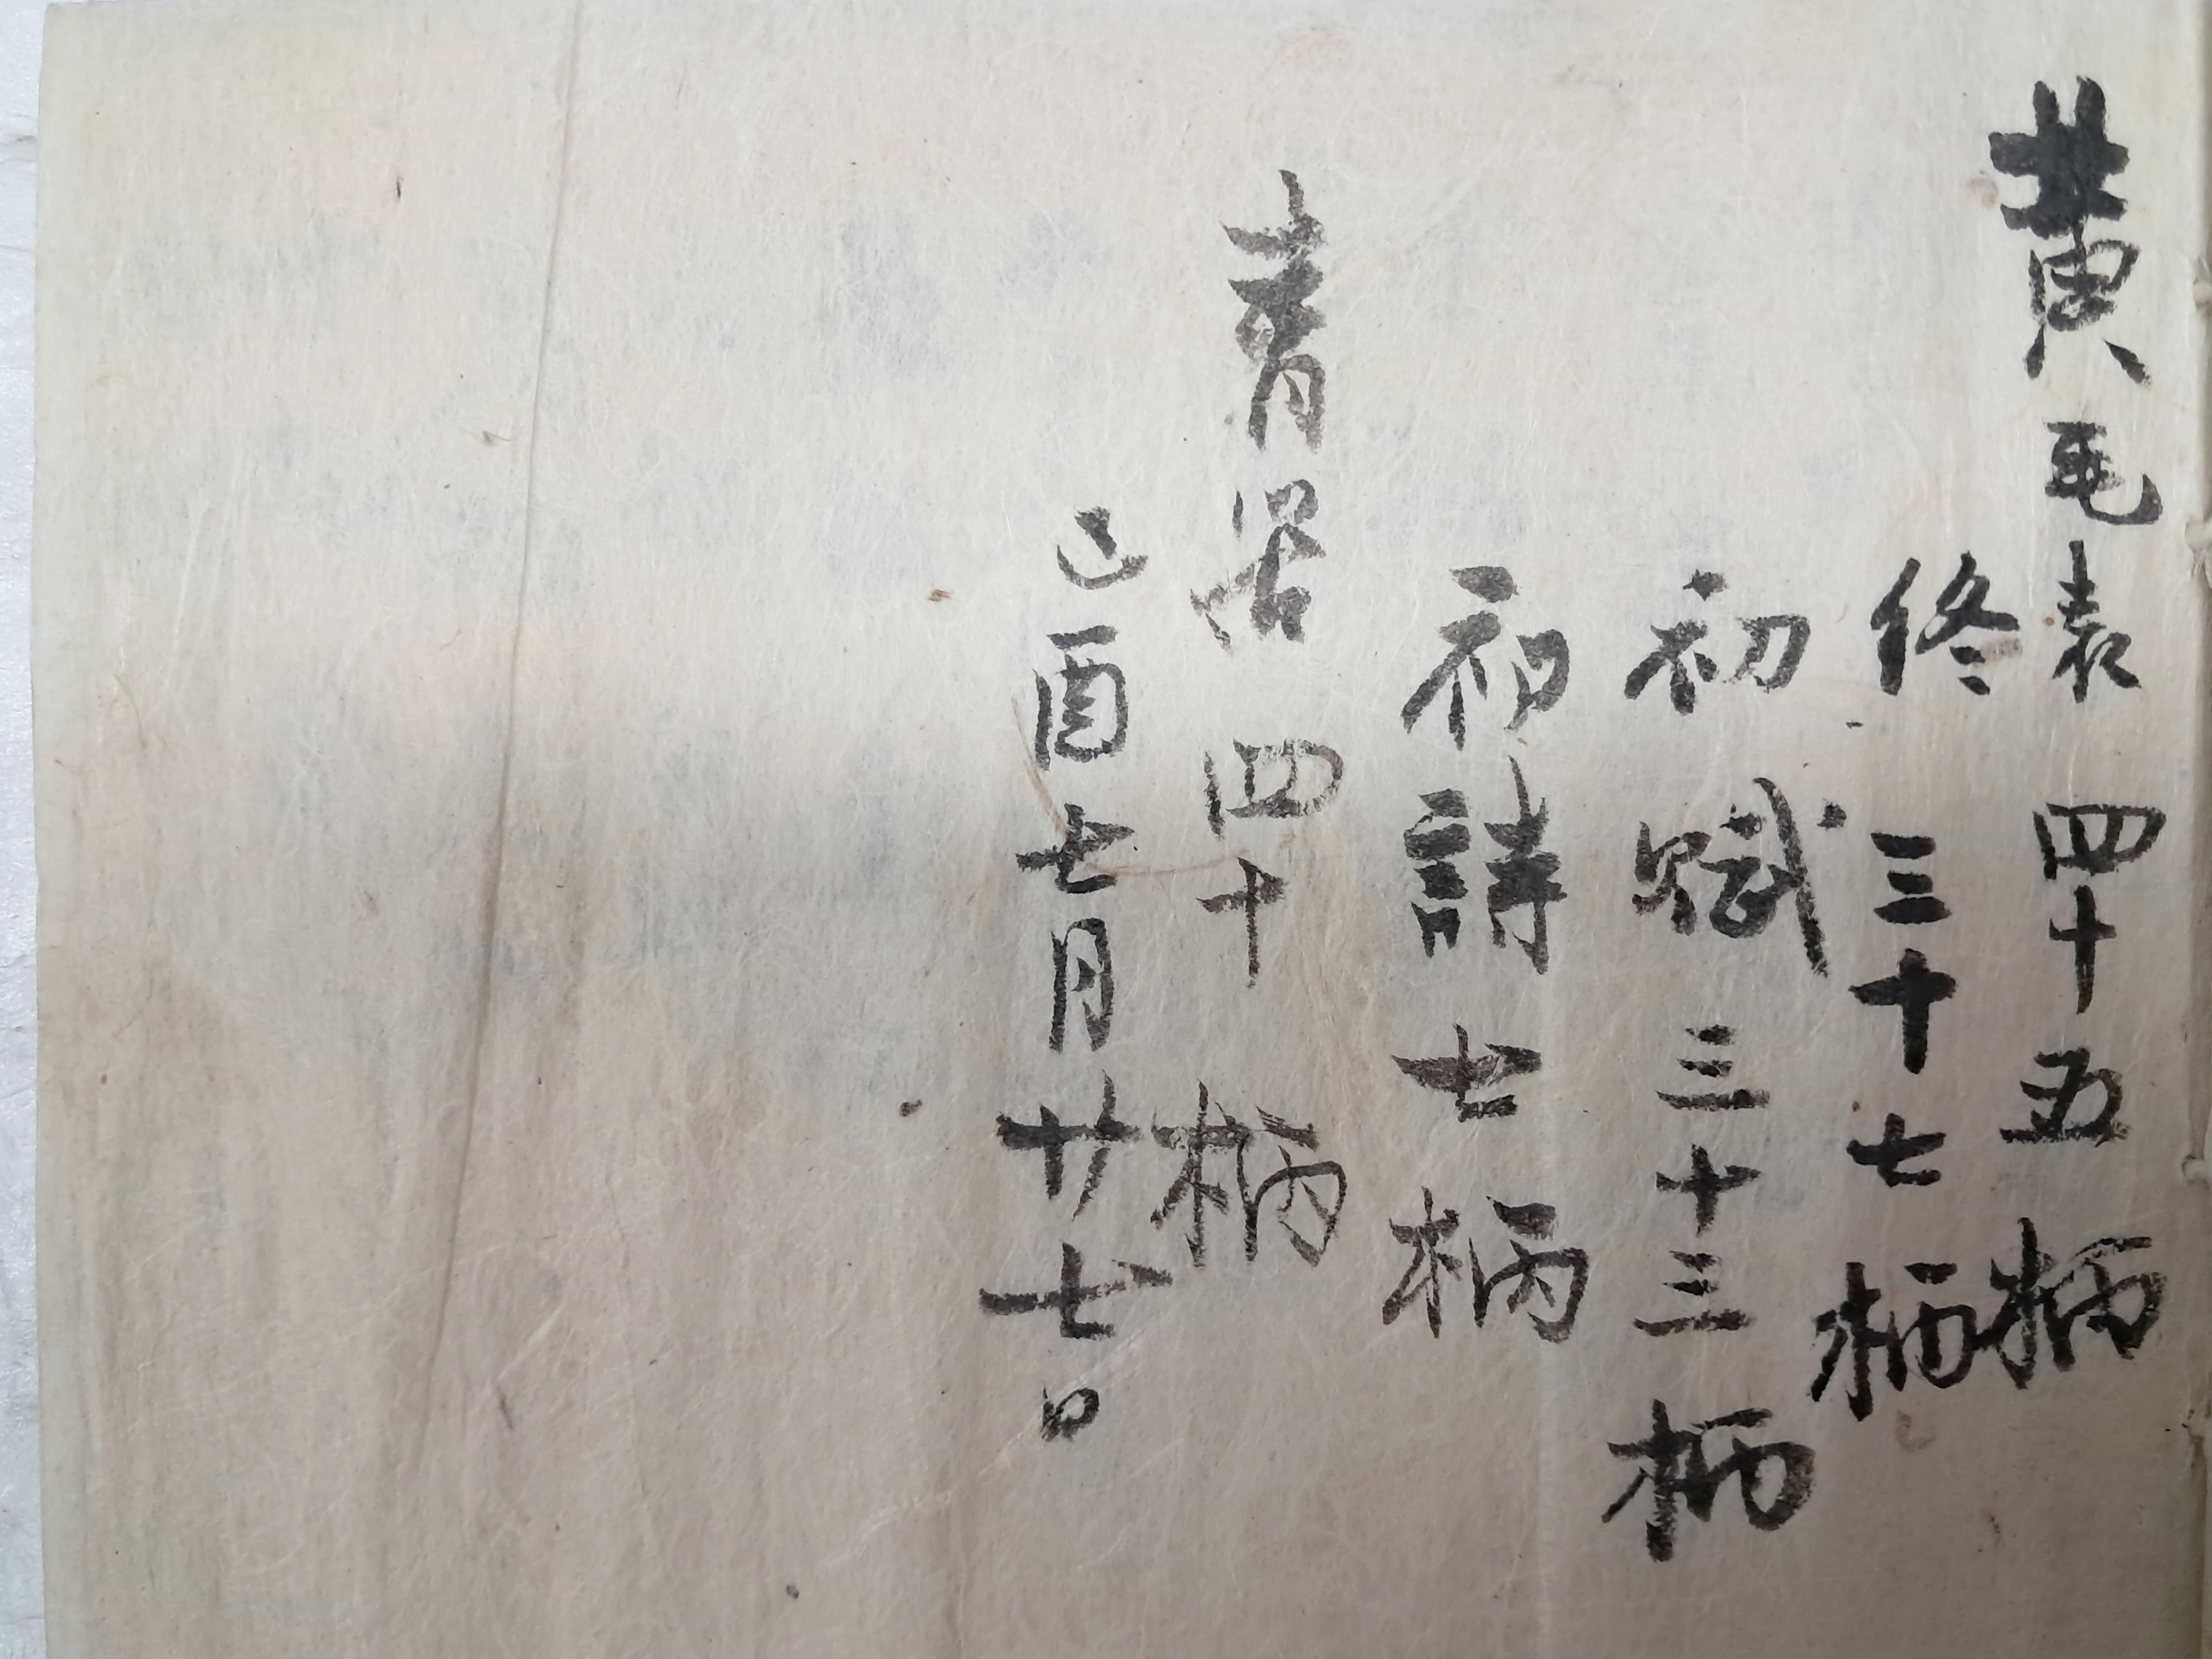 黄毛表 四十五柄
終 三十七柄
初賦 三十三柄
初詩 廿柄
青 四十柄
己酉七月廿七日